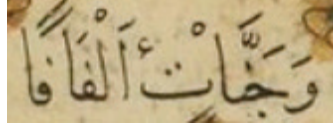 وَجَنَّاتٍ أَلْفَافًا